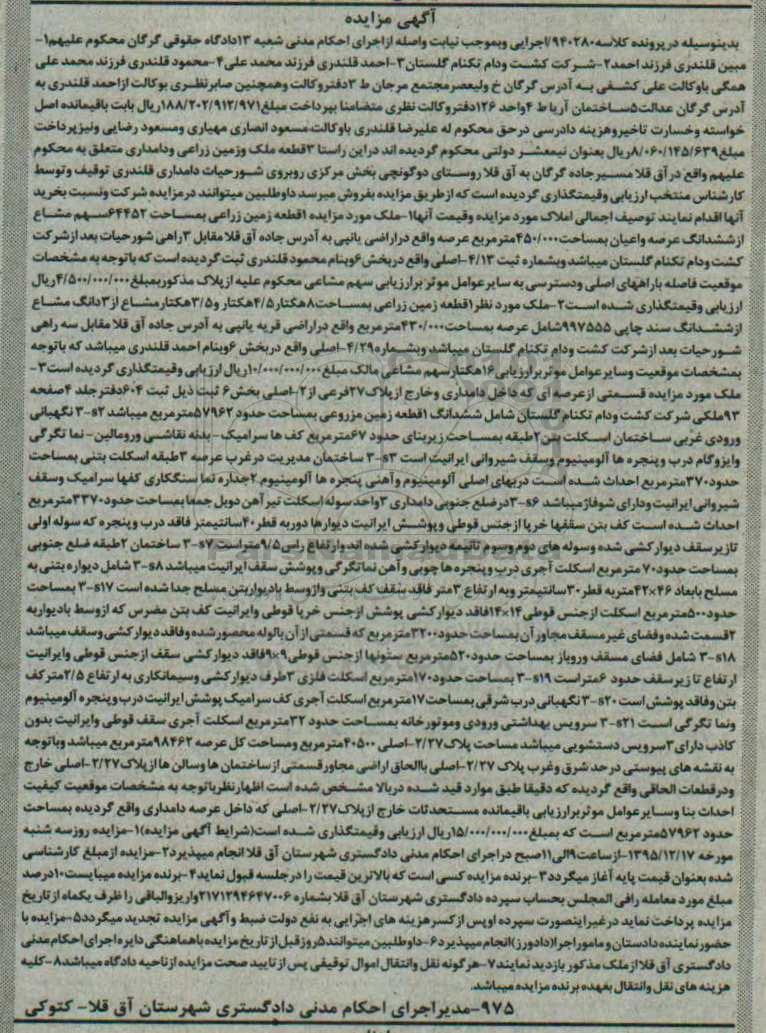 آگهی مزایده
بدینوسیله در پرونده کلاسه ۹۴۰۲۸۰/اجرایی وبموجب نیابت واصله ازاجرای احکام مدنی شعبه ۱۳دادگاه حقوقی گرگان محکوم علیهم۱-
مبین قلندری فرزند احمد۲-شرکت کشت ودام تکنام گلستان۳-احمد قلندری فرزند محمد علی۴-محمود قلندری فرزند محمد علی
همگی باوکالت علی کشفی به آدرس گرگان خ ولیعصرمجتمع مرجان ط ۳دفتروکالت وهمچنین صابرنظری بوکالت ازاحمد قلندری به
آدرس گرگان عدالت۵ساختمان آریا ط ۴واحد ۱۲۶دفتروکالت نظری متضامنا بپرداخت مبلغ۱۸۸/۲۰۲/۹۱۲/۹۷۱ریال بابت باقیمانده اصل
خواسته وخسارت تاخیروهزینه دادرسی درحق محکوم له علیرضا قلندری باوکالت مسعود انصاری مهیاری ومسعود رضایی ونیزپرداخت
مبلغ۸/۰۶۰/۱۴۵/۶۳۹ریال بعنوان نیمعشر دولتی محکوم گردیده اند دراین راستا ۳قطعه ملک وزمین زراعی ودامداری متعلق به محکوم
علیهم واقع درآق قلا مسیرجاده گرگان به آق قلا روستای دوگونچی بخش مرکزی روبروی شورحیات دامداری قلندری توقیف وتوسط
کارشناس منتخب ارزیابی وقیمتگذاری گردیده است که ازطریق مزایده بفروش میرسد داوطلبین میتوانند درمزایده شرکت ونسبت بخرید
آنها اقدام نمایند توصیف اجمالی املاک مورد مزایده وقیمت آنها۱-ملک مورد مزایده ۱قطعه زمین زراعی بمساحت ۶۴۴۵۲سهم مشاع
ازششدانگ عرصه واعیان بمساحت۴۵۰/۰۰۰مترمربع عرصه واقع دراراضی یانپی به آدرس جاده آق قلا مقابل ۳راهی شورحیات بعد ازشرکت
کشت ودام تکنام گلستان میباشد وبشماره ثبت ۴/۱۳-اصلی واقع دربخش ۶وبنام محمود قلندری ثبت گردیده است که باتوجه به مشخصات
موقعیت فاصله باراههای اصلی ودسترسی به سایرعوامل موثر برارزیابی سهم مشاعی محکوم علیه ازپلاک مذکوربمبلغ۴/۵۰۰/۰۰۰/۰۰۰ریال
ارزیابی وقیمتگذاری شده است۲-ملک مورد نظر۱قطعه زمین زراعی بمساحت۸هکتار۴/۵هکتار و۳/۵هکتارمشاع از۳دانگ مشاع
ازششدانگ سند چاپی ۹۹۷۵۵۵شامل عرصه بمساحت۴۳۰/۰۰۰مترمربع واقع دراراضی قریه یانپی به آدرس جاده آق قلا مقابل سه راهی
شورحیات بعد ازشرکت کشت ودام تکنام گلستان میباشد وبشماره۴/۲۹-اصلی واقع دربخش ۶وبنام احمد قلندری میباشد که باتوجه
بمشخصات موقعیت وسایرعوامل موثربرارزیابی۱۶هکتارسهم مشاعی مالک مبلغ ۱۰/۰۰۰/۰۰۰/۰۰۰ریال ارزیابی وقیمتگذاری گردیده است۳-
ملک مورد مزایده قسمتی ازعرصه ای که داخل دامداری وخارج ازپلاک۲۷فرعی از۲-اصلی بخش۶ ثبت ذیل ثبت ۶۰۴دفترجلد ۴صفحه
۹۳ملکی شرکت کشت ودام تکنام گلستان شامل ششدانگ ۱قطعه زمین مزروعی بمساحت حدود ۵۷۹۶۲مترمربع میباشد s۲-۳ نگهبانی
ورودی غربی ساختمان اسکلت بتن۲طبقه بمساحت زیربنای حدود ۶۷مترمربع کف ها سرامیک- بدنه نقاشی ورومالین- نما تگرگی
وایزوگام درب وپنجره ها آلومینیوم وسقف شیروانی ایرانیت است s۳-۳ ساختمان مدیریت درغرب عرصه ۳طبقه اسکلت بتنی بمساحت
حدود۳۷۰مترمربع احداث شده است دربهای اصلی آلومینیوم وآهنی پنجره ها آلومینیوم ۲جداره نما سنگکاری کفها سرامیک وسقف
شیروانی ایرانیت ودارای شوفاژمیباشد s۶-۳درضلع جنوبی دامداری ۳واحد سوله اسکلت تیرآهن دوبل جمعا بمساحت حدود۳۳۷۰مترمربع
احداث شده است کف بتن سقفها خرپا ازجنس قوطی وپوشش ایرانیت دیوارها دوربه قطر۴۰سانتیمتر فاقد درب وپنجره که سوله اولی
تازیرسقف دیوارکشی شده وسوله های دوم وسوم تانیمه دیوارکشی شده اند وارتفاع راس۹/۵متراست s۷-۳ ساختمان ۲طبقه ضلع جنوبی
بمساحت حدود۷۰ مترمربع اسکلت آجری درب وپنجره ها چوبی وآهن نماتگرگی وپوشش سقف ایرانیت میباشد s۸-۳ شامل دیواره بتنی به
مسلح بابعاد ۴۶×۴۲متربه قطر۳۰سانتیمتر وبه ارتفاع ۳متر فاقد سقف کف بتنی واژوسط بادیواربتن مسلح جدا شده است s۱۷-۳ بمساحت
حدود۵۰۰مترمربع اسکلت ازجنس قوطی۱۴×۱۴فاقد دیوارکشی پوشش ازجنس خرپا قوطی وایرانیت کف بتن مضرس که ازوسط بادیواربه
۲قسمت شده وفضای غیرمسقف مجاورآن بمساحت حدود۳۲۰۰مترمربع که قسمتی ازآن بالوله محصورشده وفاقد دیوارکشی وسقف میباشد
s۱۸-۳ شامل فضای مسقف وروباز بمساحت حدود۵۲۰مترمربع ستونها ازجنس قوطی۹×۹فاقد دیوارکشی سقف ازجنس قوطی وایرانیت
ارتفاع تازیرسقف حدود ۶متراست s۱۹-۳ بمساحت حدود۱۷۰مترمربع اسکلت فلزی ۳طرف دیوارکشی وسیمانکاری به ارتفاع ۲/۵مترکف
بتن وفاقد پوشش است s۲۰-۳نگهبانی درب شرقی بمساحت۱۷مترمربع اسکلت آجری کف سرامیک پوشش ایرانیت درب وپنجره آلومینیوم
ونما تگرگی است s۲۱-۳ سرویس بهداشتی ورودی وموتورخانه بمساحت حدود ۳۲مترمربع اسکلت آجری سقف قوطی وایرانیت بدون
کاذب دارای۳سرویس دستشویی میباشد مساحت پلاک۲/۲۷-اصلی ۴۰۵۰۰مترمربع ومساحت کل عرصه ۹۸۴۶۲مترمربع میباشد وباتوجه
به نقشه های پیوستی درحد شرق وغرب پلاک ۲/۲۷-اصلی باالحاق اراضی مجاورقسمتی ازساختمان ها وسالن ها ازپلاک۲/۲۷-اصلی خارج
ودرقطعات الحاقی واقع گردیده که دقیقا طبق موارد قید شده دربالا مشخص شده است اظهارنظرباتوجه به مشخصات موقعیت کیفیت
احداث بنا وسایرعوامل موثربرارزیابی باقیمانده مستحدثات خارج ازپلاک۲/۲۷-اصلی که داخل عرصه دامداری واقع گردیده بمساحت
حدود ۵۷۹۶۲مترمربع است که بمبلغ۱۵/۰۰۰/۰۰۰/۰۰۰ریال ارزیابی وقیمتگذاری شده است(شرایط آگهی مزایده)۱-مزایده روزسه شنبه
مورخه ۱۳۹۵/۱۲/۱۷-ازساعت۹الی۱۱صبح دراجرای احکام مدنی دادگستری شهرستان آق قلا انجام میپذیرد۲-مزایده ازمبلغ کارشناسی
شده بعنوان قیمت پایه آغاز میگردد۳-برنده مزایده کسی است که بالاترین قیمت را درجلسه قبول نماید۴-برنده مزایده میبایست۱۰درصد
مبلغ مورد معامله رافی المجلس بحساب سپرده دادگستری شهرستان آق قلا بشماره ۲۱۷۱۲۹۴۶۴۷۰۰۶واریزوالباقی را ظرف یکماه ازتاریخ
مزایده پرداخت نماید درغیراینصورت سپرده اوپس ازکسرهزینه های اجرایی به نفع دولت ضبط وآگهی مزایده تجدید میگردد۵-مزایده با
حضورنماینده دادستان ومامور اجرا(دادورز)انجام میپذیرد۶-داوطلبین میتوانند۵روزقبل ازتاریخ مزایده باهماهنگی دایره اجرای احکام مدنی
دادگستری آق قلا ازملک مذکور بازدید نمایند۷-هرگونه نقل وانتقال اموال توقیفی پس ازتایید صحت مزایده ازناحیه دادگاه میباشد۸-کلیه
هزینه های نقل وانتقال بعهده برنده مزایده میباشد.
۹۷۵-مدیراجرای احکام مدنی دادگستری شهرستان آق قلا- کتوکی